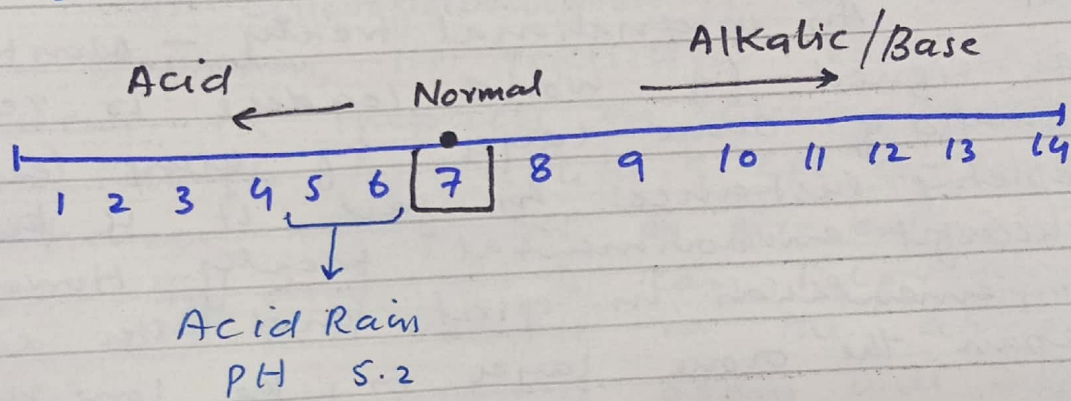 Acid Normal Alkalic/Base
1 2 3 4 5 6 7 8 9 10 11 12 13 14
Acid Rain
PH 5.2